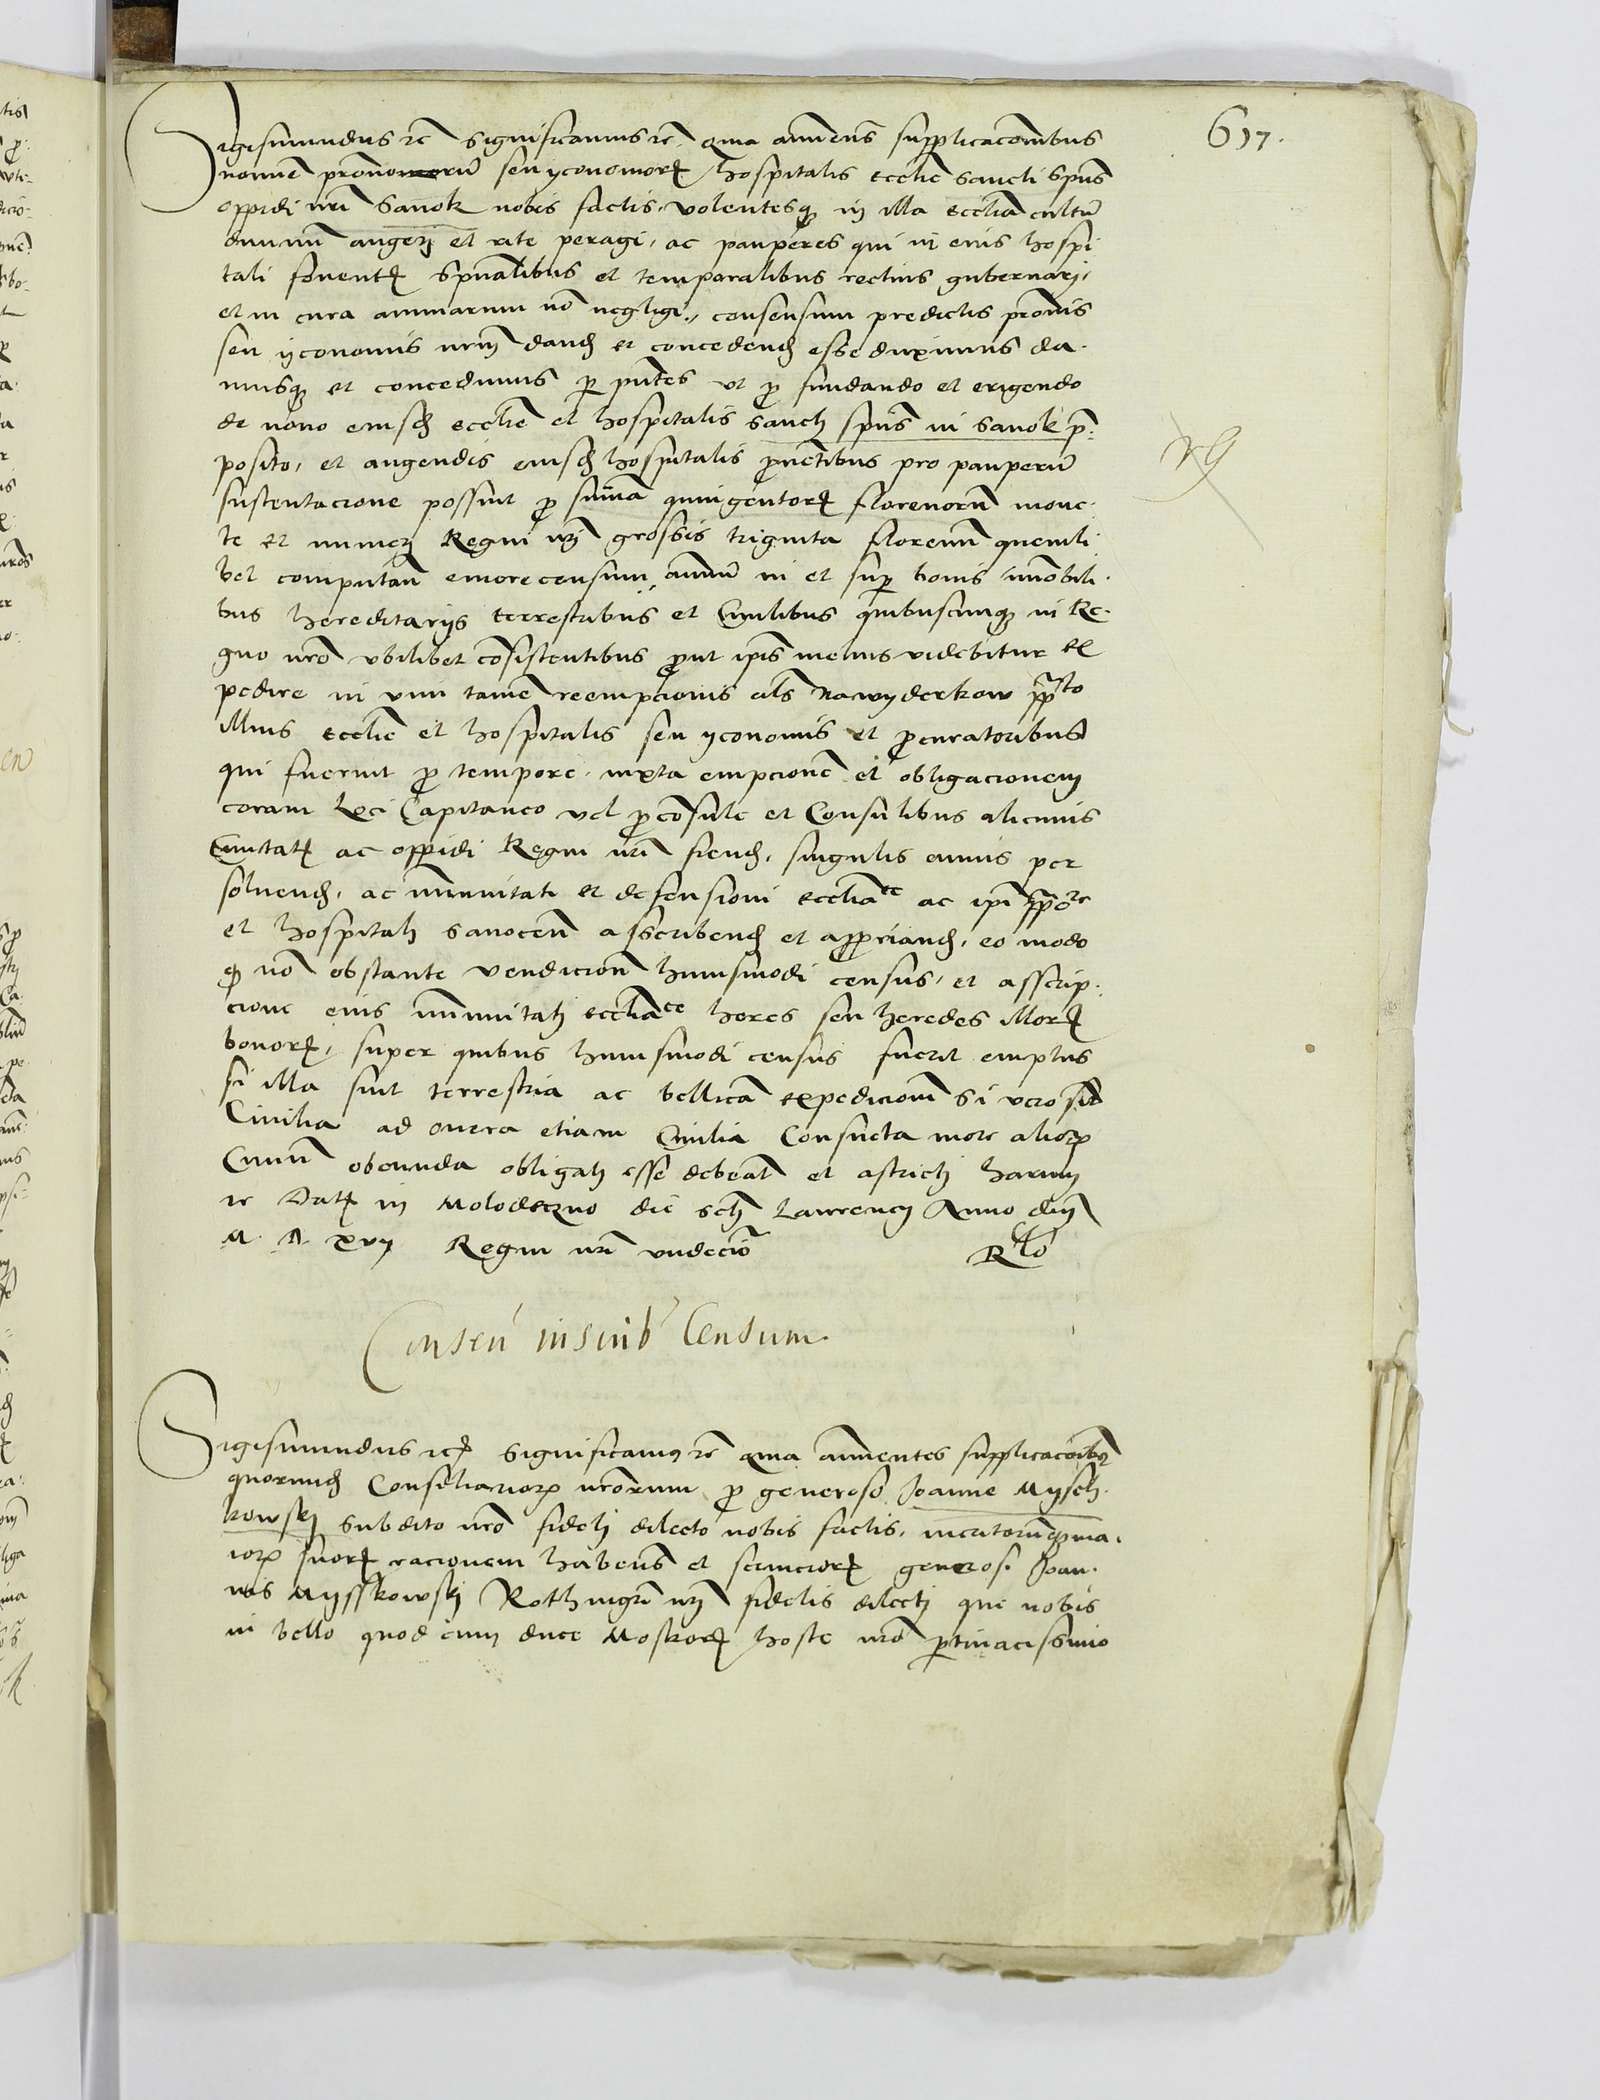 617.
Sigismundus etc Significamus etc. Quia annuens supplicacionibus
nomine provisorum seu yconomorum hospitalis ecclie Sancti Spus
oppidi nri Sanok nobis factis, volentesque in illa ecclia cultum
divinum augeri et rite peragi, ac pauperes qui in eius hospi
tali foventur spualibus et temporalibus rectius gubernari,
et in cura animarum no negligi, consensum predictis provis
seu yconomis nrum dand et concedend esse duximus da-
musque et concedimus per pntes ut pro fundando et erigendo
de novo eiusd ecclie et hospitalis Sancti Spus in Sanok pre-
posito, et augendis eiusd hospitalis provetibus pro pauperum
sustentacione possint pro summa quingentorum florenorum mone-
te et numeri Regni nri grossis triginta florenum quemli
bet computan emere censum annuum in et super bonis imobili-
bus hereditariis terrestribus et Civilibus quibuscunque in Re-
gno nro ubilibet consistentibus prout ipis melius videbitur ex
pedire in vim tamen reempcionis als na wyderkow ppto
illius ecclie et hospitalis seu yconomis et procuratoribus
qui fuerint pro tempore, iuxta empcione et obligacionem
coram loci Capitaneo vel proconsule et Consulibus alicuius
Civitatis ac oppidi Regni nri fiend, singulis annis per
solvend, ac imunitati et defensioni ecclia ce ac ipi ppo
et hospitali Sanocen asscribend et appropriand, eo modo
quod non obstante vendicione huiusmodi census, et asscrip-
cione eius imunitati ecclia ce heres seu heredes illorum
bonorum, super quibus huiusmodi census fuerit emptus
si illa sint terrestria ac bellicam expedicionem Si vero sint
Civilia ad onera etiam Civilia Consueta more aliorum
Civium obeunda obligati esse debeant et astricti harum
etc Dat in Molodeczno die scti Laurencii Anno dni
M. D. xvii Regni nri undecimo Rlo
Consen inscrib Censum.
Sigismundus etc Significamus etc quia annuentes supplicacionibus
quorund Consiliariorum nrorum pro generoso Joanne Mysch-
kowsky subdito nro fideli dilecto nobis factis, meritorumque ma-
iorum suorum racionem habens et serviciorum generosi Joan-
nis Mysskowsky Rothmgri nri fidelis dilecti que nobis
in bello quod cum duce Moskor hoste nro pertinacissimo